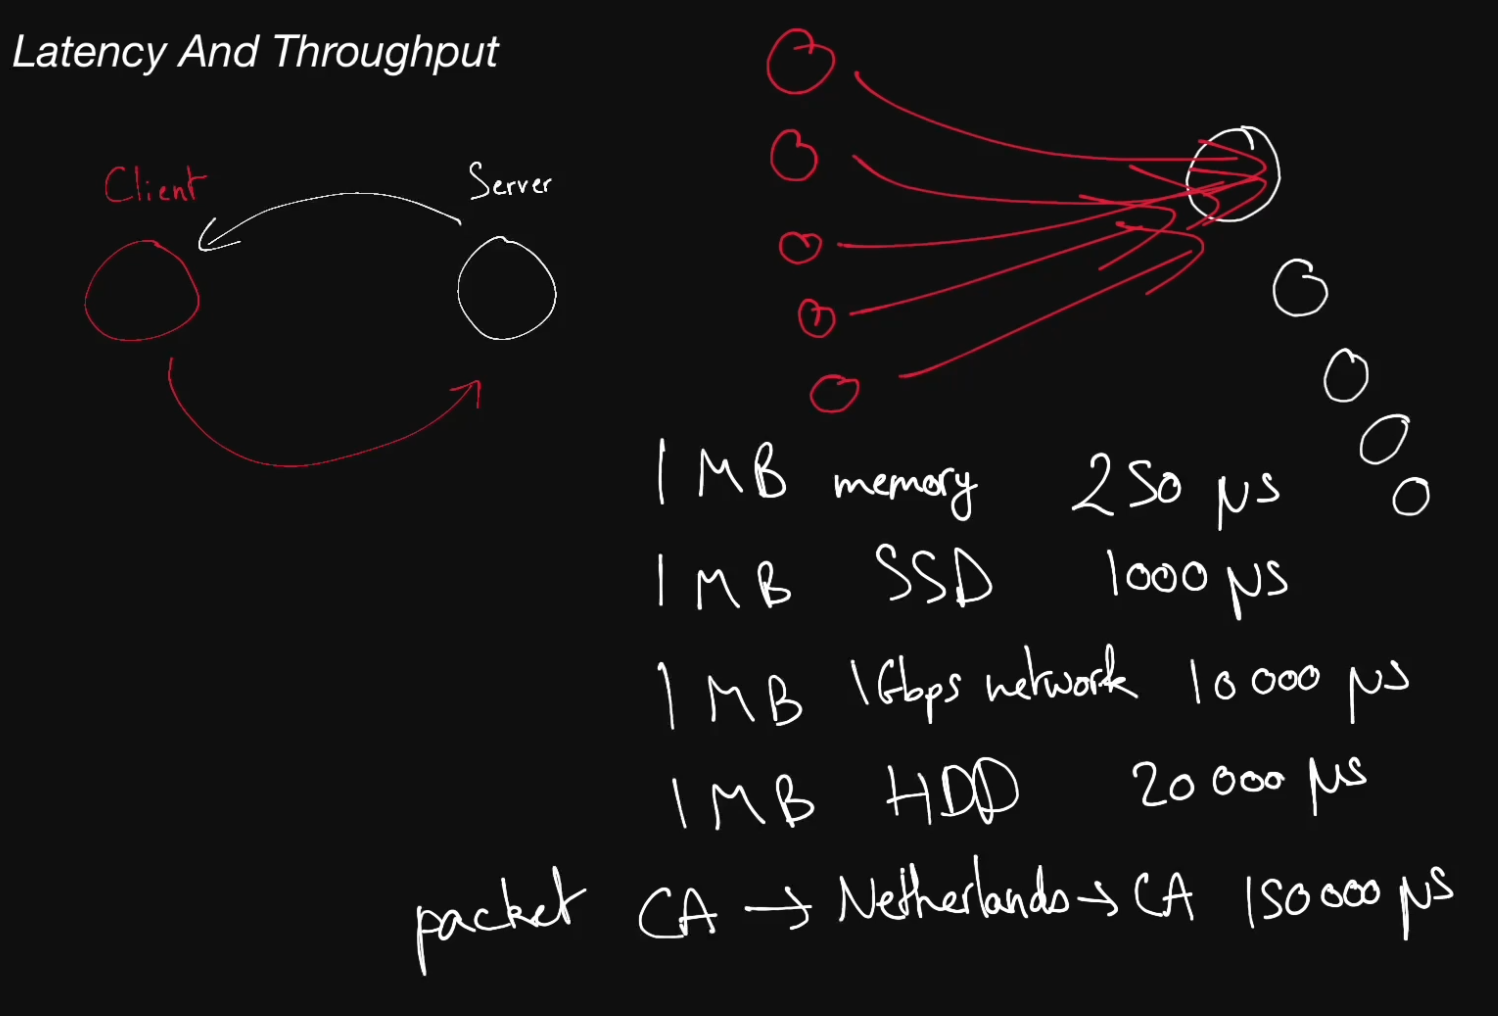 Latency And Throughput
Client
Server
1 MB memory 250 μs
1 MB SSD 1000 μs
1 MB 1Gbps network 10000 μs
1 MB HDD 20000 μs
packet CA → Netherlands → CA 150000 μs